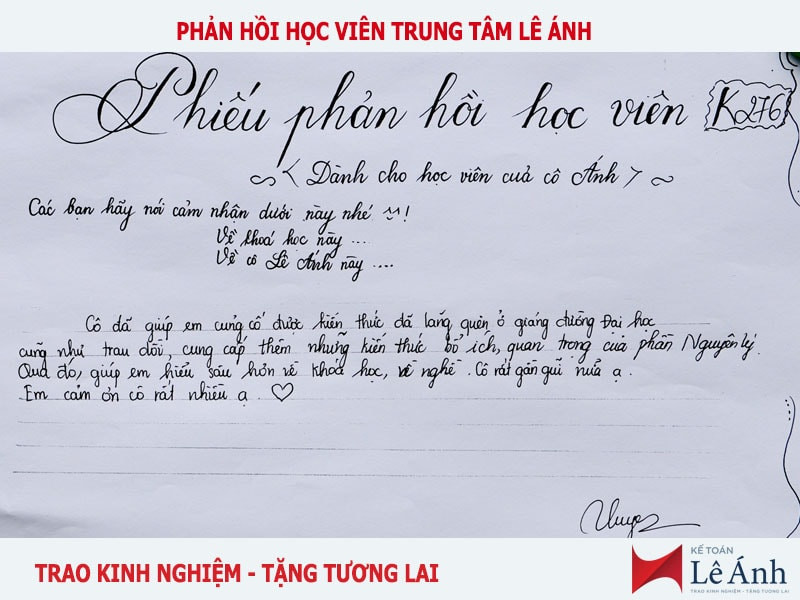 PHẢN HỒI HỌC VIÊN TRUNG TÂM LÊ ÁNH
Phiếu phản hồi học viên K276
< Dành cho học viên cuả cô Ánh >
Các bạn hãy nói cảm nhận dưới này nhé !
Về khoá học này ...
Về cô Lê Ánh này ....
Cô đã giúp em cung cố được kiến thức đã lãng quên ở giảng đường Đại học
cũng như trau dồi, cung cấp thêm những kiến thức bổ ích, quan trọng cuả phần Nguyên lý.
Qua đó, giúp em hiểu sâu hơn về khoá học, về nghề. Cô rất gần guĩ nưã ạ.
Em cảm ơn cô rất nhiều ạ. ♡
TRAO KINH NGHIỆM - TẶNG TƯƠNG LAI
KẾ TOÁN
Lê Ánh
TRAO KINH NGHIỆM - TẶNG TƯƠNG LAI